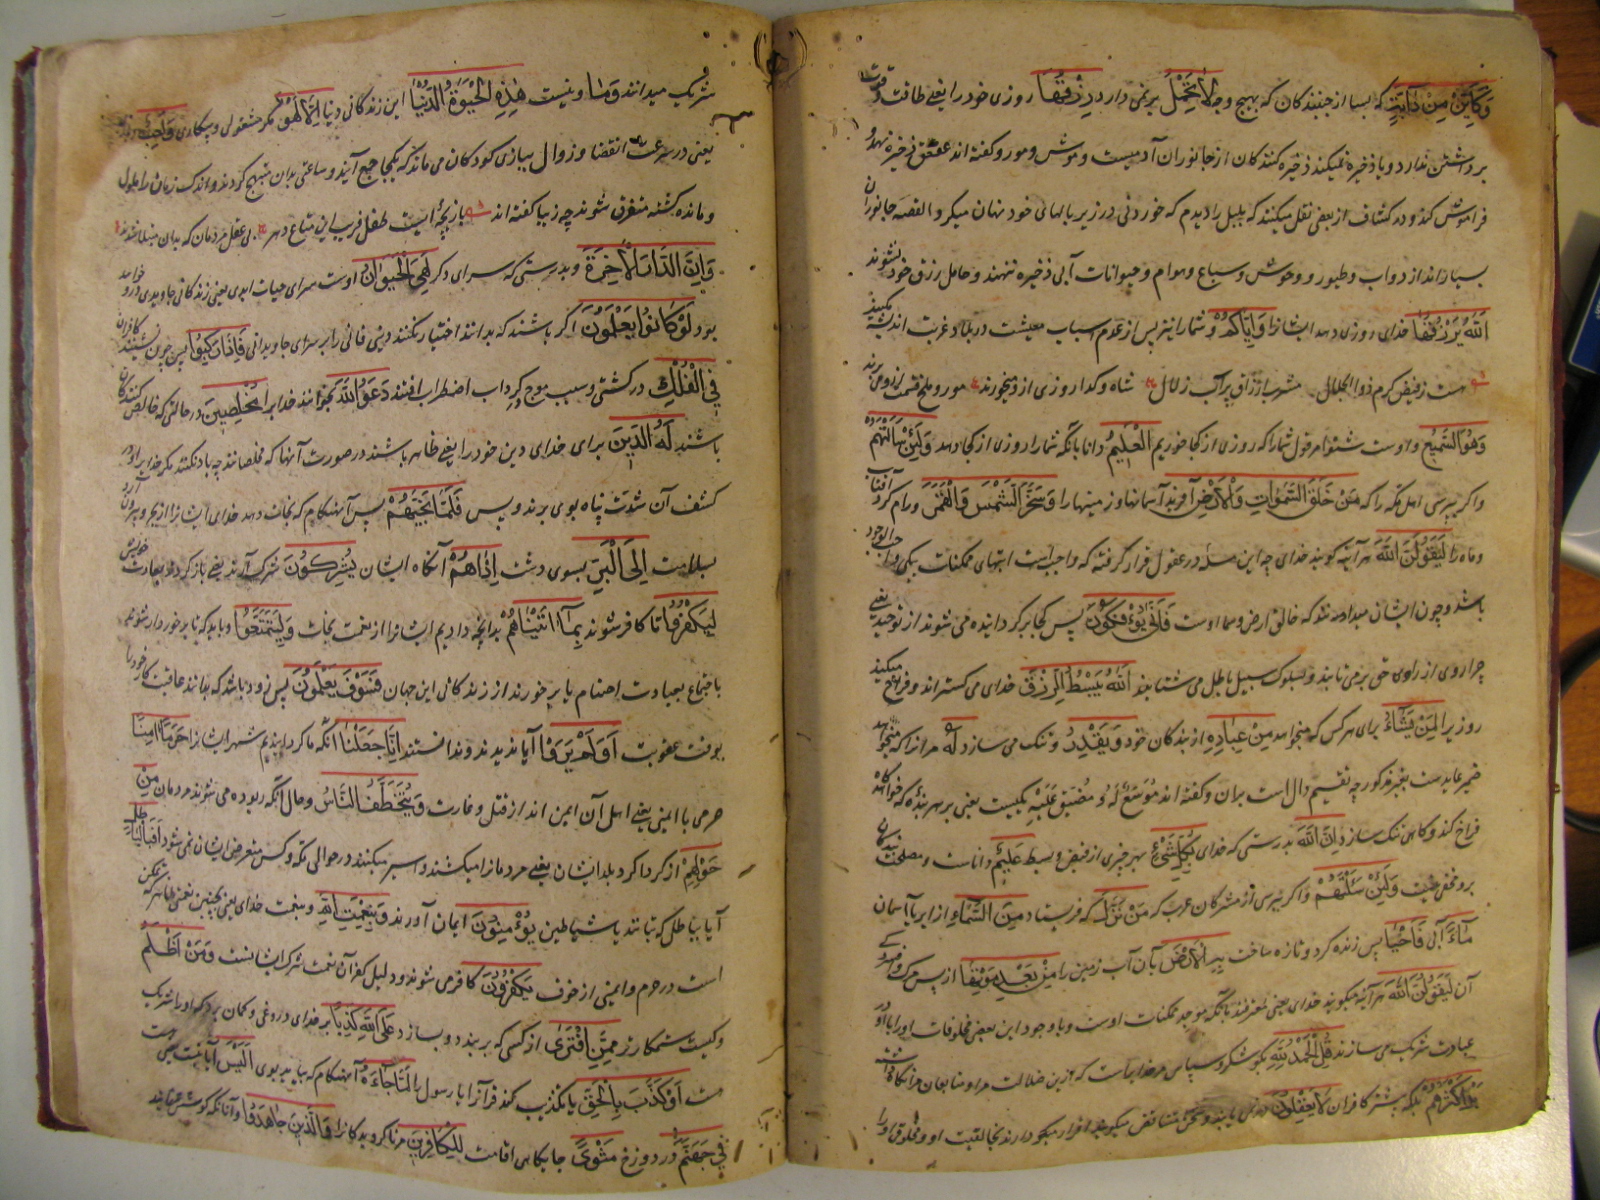 وَكَأَيِّنْ مِنْ دَابَّةٍ که بسا از جنبندگان که بهیچ وجه لَا تَحْمِلُ برنمی دارد رِزْقَهَا روزی خود را یعنی طاقت
برداشتن ندارد و یا ذخیره نمیکند ذخیره کنندگان از جانوران آدمیست و موش و مور و گفته اند عقعق ذخیره نهد و
فراموش کند و در کشاف از بعضی نقل میکنند که بلبل را دیدم که خوردنی در زیر بالهای خود نهان میکرد القصه جانوران
بسیار اند از دواب و طیور و وحوش و سباع و هوام و حیوانات آبی ذخیره ننهند و حامل رزق خود نشوند
اللَّهُ يَرْزُقُهَا خدای روزی دهد ایشانرا وَإِيَّاكُمْ و شما را نیز پس از عدم اسباب معیشت در بلاد غربت اندیشه مکنید
هست ز فیض کرم ذوالجلال مشرب ارزاق پر آب زلال شاه و گدا روزی ازو میخورند مور و ملخ قسمت ازو می برند
وَهُوَ السَّمِيعُ و اوست شنوا مر قول شما را که روزی از کجا خوریم الْعَلِيمُ دانا بآنکه شما را روزی از کجا دهد وَلَئِنْ سَأَلْتَهُمْ
و اگر بپرسی اهل مکه را که مَنْ خَلَقَ السَّمَوَاتِ وَالْأَرْضَ آفرید آسمانها و زمینها را وَسَخَّرَ الشَّمْسَ وَالْقَمَرَ و رام کرد آفتاب
و ماه را لَيَقُولُنَّ اللَّهُ هر آینه گویند خدای چه این مسئله در عقول قرار گرفته که واجبست انتهای ممکنات بیکی واجب الوجود
باشد و چون ایشان میدانند که خالق ارض و سما اوست فَأَنَّى يُؤْفَكُونَ پس کجا برگردانیده می شوند از توحید یعنی
چرا روی از راوی حق برمی تابند و بسلوک سبیل باطل می شتابند اللَّهُ يَبْسُطُ الرِّزْقَ خدای می گستراند و فراخ میکند
روزی را لِمَنْ يَشَاءُ برای هر کس که میخواهد مِنْ عِبَادِهِ از بندگان خود وَيَقْدِرُ و تنگ می سازد لَهُ مر آنرا که میخواهد
ضمیر عایدست بغیر مذکور چه تقسیم دال است بران و گفته اند مُوَسَّعٌ لَهُ و مُضَيَّقٌ عَلَيْهِ یکیست یعنی بر هر بنده که خواهد گاه
فراخ کند و گاهی تنگ سازد إِنَّ اللَّهَ بدرستی که خدای بِكُلِّ شَيْءٍ بهر چیزی از قبض و بسط عَلِيمٌ داناست و مصلحت بندگان
برو مخفی نیست وَلَئِنْ سَأَلْتَهُمْ و اگر بپرسی از مشرکان عرب که مَنْ نَزَّلَ که فرستاد مِنَ السَّمَاءِ از ابر یا آسمان
مَاءً آبی فَأَحْيَا پس زنده کرد و تازه ساخت بِهِ الْأَرْضَ بآن آب زمین را مِنْ بَعْدِ مَوْتِهَا از پس مرگ و
آن لَيَقُولُنَّ اللَّهُ هر آینه میگویند خدای یعنی معترفند بآنکه موجد ممکنات اوست و با وجود این بعض مخلوقات او را با او در
عبادت شریک می سازند قُلِ الْحَمْدُ لِلَّهِ بگو شکر و سپاس مر خدایراست که ازین ضلالت مرا و متابعان مرا نگاه داشته
بَلْ أَكْثَرُهُمْ بلکه بیشتر کافران لَا يَعْقِلُونَ در نمی یابند و سخن متناقض میگویند اقرار میکنند دارند بخالقیت او و مخلوق او را
شریک میدانند وَمَا و نیست هَذِهِ الْحَيَوةُ الدُّنْيَا این زندگانی دنیا إِلَّا لَهْوٌ مگر مشغولی و بیکاری وَلَعِبٌ
یعنی در سرعت انقضا و زوال ببازی کودکان می ماند که یکجا جمع آیند و ساعتی بدان مبتهج گردند و اندک زمان را ملول
و مانده گشته متفرق شوند چه زیبا گفته اند بازیچه ایست طفل فریب این متاع دهر بی عقل مردمان که بدان مبتلا شوند
وَإِنَّ الدَّارَ الْآخِرَةَ و بدرستی که سرای دیگر لَهِيَ الْحَيَوَانُ اوست سرای حیات ابدی یعنی زندگانی جاویدی درو خواهد
بود لَوْ كَانُوا يَعْلَمُونَ اگر باشند که بدانند اختیار نکنند دنیی فانی را بر سرای جاودانی فَإِذَا رَكِبُوا پس چون نشینند کافران
فِي الْفُلْكِ در کشتی و بسبب موج گرداب اضطراب افتند دَعَوُا اللَّهَ بخوانند خدایرا مُخْلِصِينَ در حالتی که خالص کنندگان
باشند لَهُ الدِّينَ برای خدای دین خود را یعنی ظاهر باشند در صورت آنها که مخلصانند چه یاد نکنند مگر خدایرا و در
کشف آن شدت پناه بوی برند و بس فَلَمَّا نَجَّيهُمْ پس آنهنگام که نجات دهد خدای ایشانرا از بحر و بیرون آرد
بسلامت إِلَى الْبَرِّ بسوی دشت إِذَا هُمْ آنگاه ایشان يُشْرِكُونَ شرک آرند یعنی باز گردند بعادت خویش
لِيَكْفُرُوا تا کافر شوند بِمَا آتَيْنَاهُمْ بدانچه دادیم ایشانرا از نعمت نجات وَلِيَتَمَتَّعُوا و باید که تا برخوردار شوند
باجتماع بعبادت اصنام یا برخورند از زندگانی این جهان فَسَوْفَ يَعْلَمُونَ پس زود باشد که بدانند عاقبت کار خود را
بوقت عقوبت أَوَلَمْ يَرَوْا آیا ندیدند و ندانستند أَنَّا جَعَلْنَا آنکه ما گردانیدیم شهر ایشانرا حَرَمًا آمِنًا
حرمی با ایمنی یعنی اهل آن ایمن اند از قتل و غارت وَيُتَخَطَّفُ النَّاسُ و حال آنکه ربوده می شوند مردمان مِنْ
حَوْلِهِمْ از گرداگرد بلد ایشان یعنی مردمانرا میکشند و اسیر میکنند در حوالی مکه و کس متعرض ایشان نمی شود أَفَبِالْبَاطِلِ
آیا بباطل که بتانند یا شیاطین يُؤْمِنُونَ ایمان آورند وَبِنِعْمَتِ اللَّهِ و بنعمت خدای یعنی بچنین نعمتی ظاهر که
است در حرم و ایمنی از خوف يَكْفُرُونَ کافر می شوند و دلیل کفران نعمت شرک ایشانست وَمَنْ أَظْلَمُ
و کیست ستمکارتر مِمَّنِ افْتَرَى از کسی که بربندد و بسازد عَلَى اللَّهِ كَذِبًا بر خدای دروغی و گمان برد که او را شریک
ست أَوْ كَذَّبَ بِالْحَقِّ یا تکذیب کند قرآنرا یا رسول را لَمَّا جَاءَهُ آنهنگام که بیاید بوی أَلَيْسَ آیا نیست یعنی هست
فِي جَهَنَّمَ در دوزخ مَثْوًى جایگاهی اقامت لِلْكَافِرِينَ مر ناگرویدگانرا وَالَّذِينَ جَاهَدُوا و آنانکه کوشش نمایند